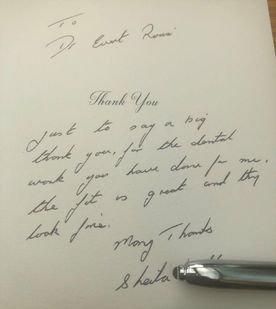 To
Dr Evert Roux
Thank You
Just to say a big
thank you, for the dental
work you have done for me.
the fit is great and they
look fine.
Many Thanks
Sheila